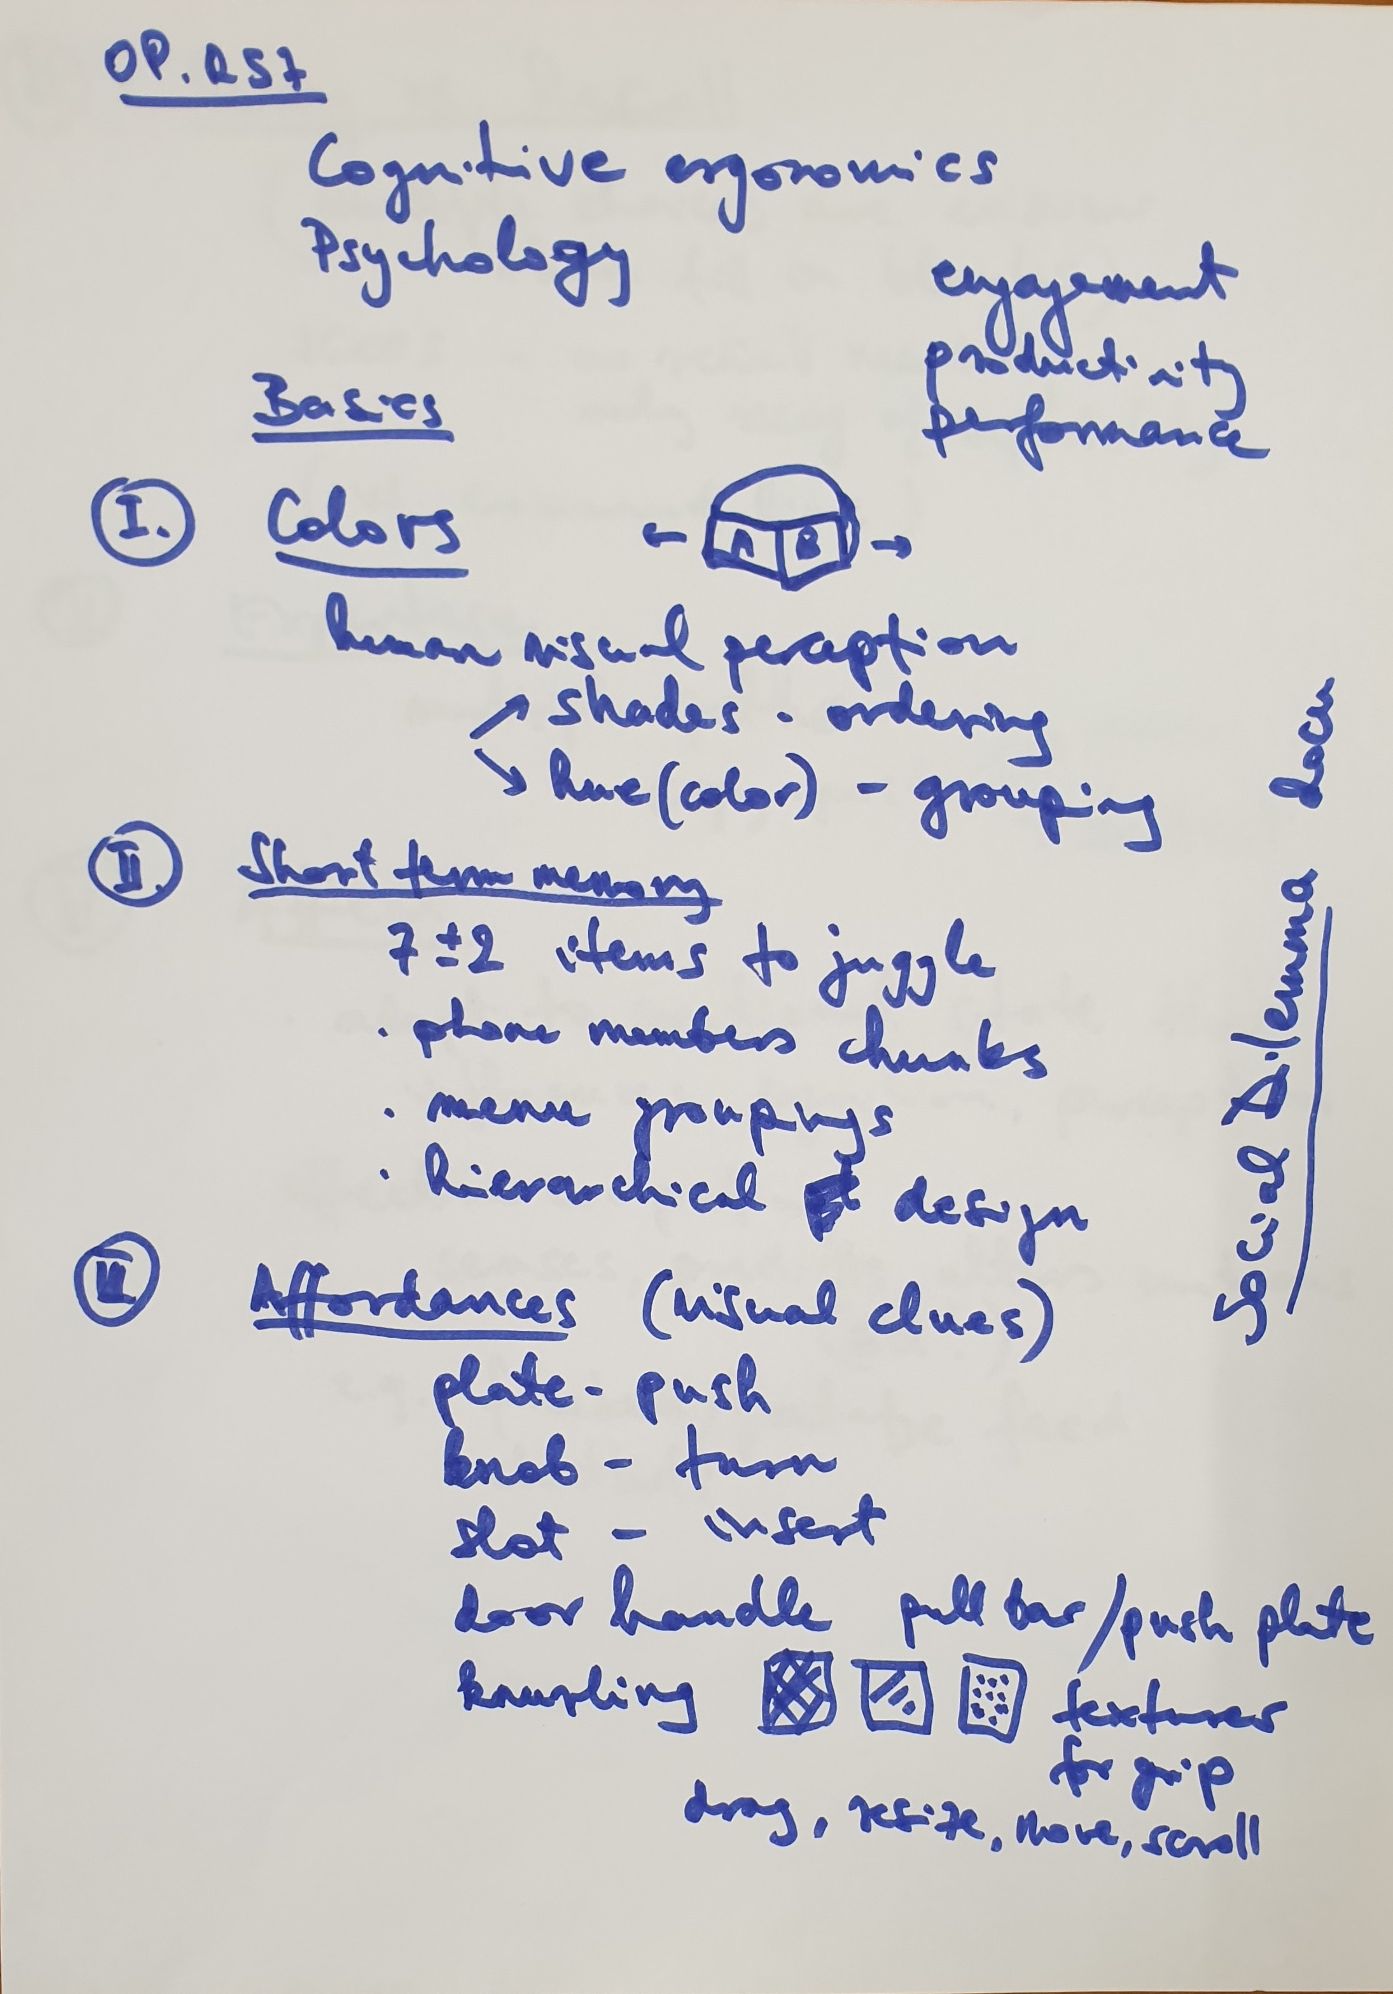 OP. RS7
Cognitive ergonomics
Psychology
engagement
productivity
performance
Basics
I. Colors
A B
human visual perception
shades - ordering
hue (color) - grouping
II. Short term memory
7 ± 2 items to juggle
. phone numbers chunks
. menu groupings
. hierarchical design
III Affordances (visual clues)
plate - push
knob - turn
slot - insert
door handle pull bar / push plate
knurling textures
for grip
drag, resize, move, scroll
Social Dilemma docu